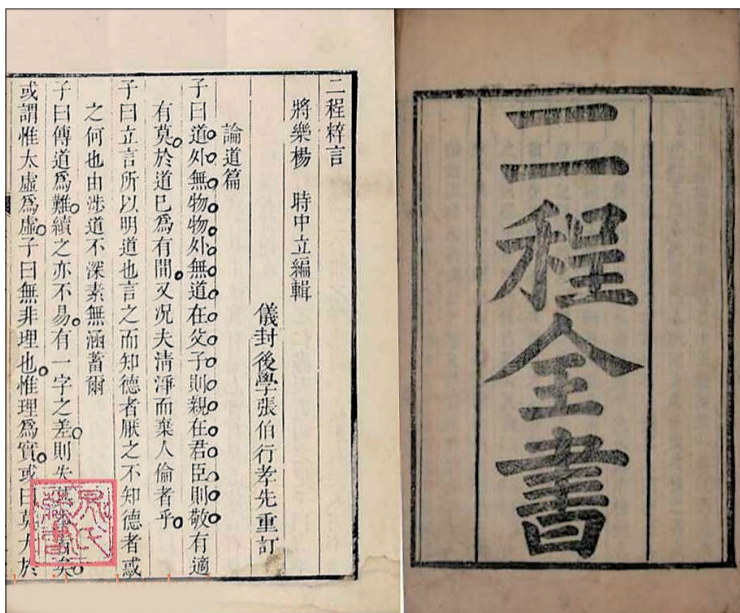 二程全書
二程粹言
將樂楊 時中立編輯
儀封後學張伯行孝先重訂
論道篇
子曰道外無物物外無道在父子則親在君臣則敬有適
有莫於道已爲有間又況夫清淨而棄人倫者乎
子曰立言所以明道也言之而知德者厭之不知德者惑
之何也由涉道不深素無涵蓄爾
子曰傳道爲難續之亦不易有一字之差則失矣
或謂惟太虛爲虛子曰無非理也惟理爲實或曰莫大於